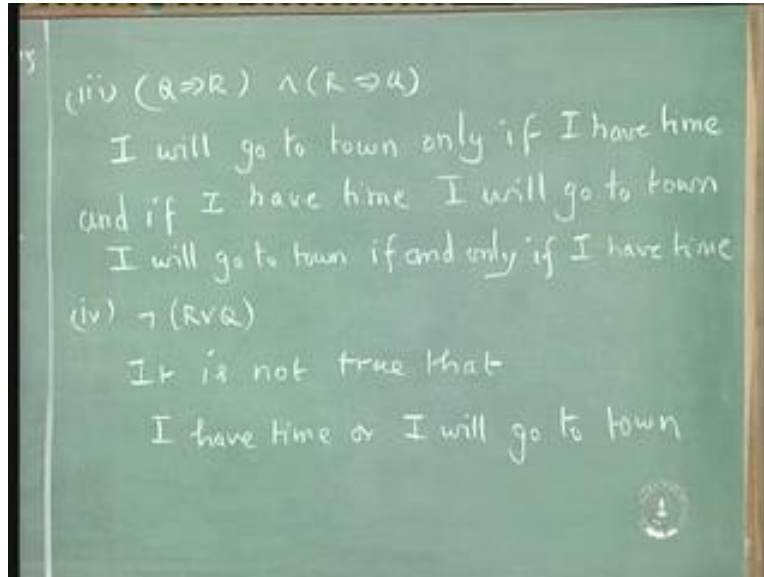 (iii) (Q⇒R) ∧ (R⇒Q)
I will go to town only if I have time
and if I have time I will go to town
I will go to town if and only if I have time
(iv) ¬ (R∨Q)
It is not true that
I have time or I will go to town